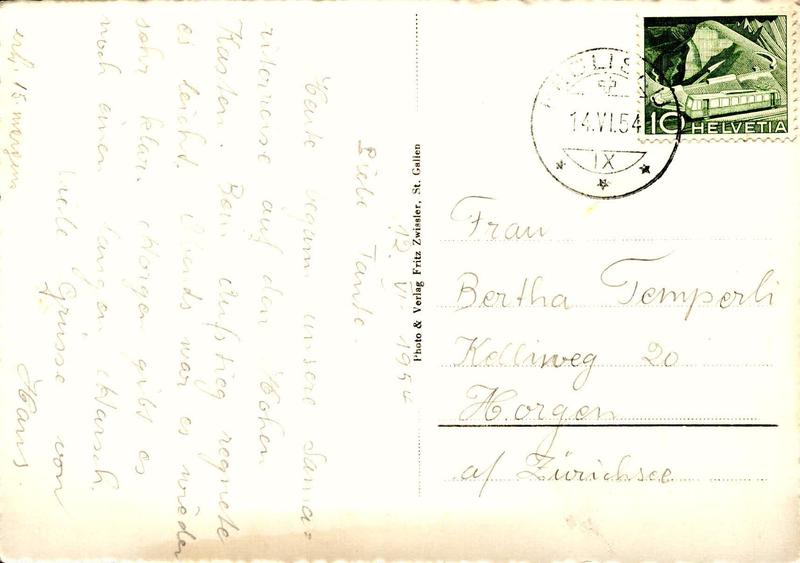 12. VI. 1954
Liebe Tante.
Heute begann unsere Sama=
riterreise auf den Hohen
Kasten. Beim Aufstieg regnete
es leicht. Abends war es wieder
sehr klar. Morgen gibt es
noch einen langen Marsch.
Viele Grüsse von
Hans.
erh. 15 morgen
Photo & Verlag Fritz Zwissler, St. Gallen
14.VI.54
IX
10 HELVETIA
Frau
Bertha Temperli
Kelliweg 20
Horgen
a/ Zürichsee